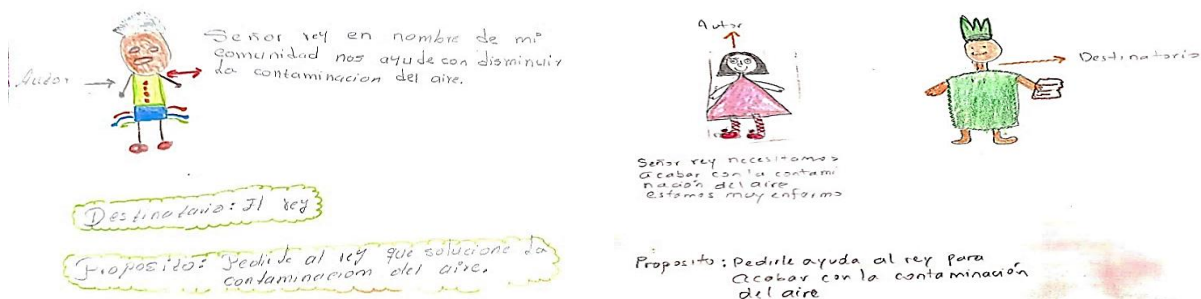 Autor
Señor rey en nombre de mi
comunidad nos ayude con disminuir
la contaminacion del aire.
Destinatario: El rey
Proposito: Pedirle al rey que solucione la
contaminación del aire.
Autor
Destinatario
Señor rey necesitamos
acabar con la contami
nación del aire
estamos muy enfermo
Proposito: Pedirle ayuda al rey para
acabar con la contaminación
del aire